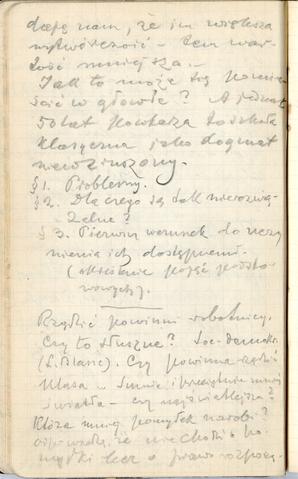 nam, że im większa
wytwórczość – tem war-
tość mniejsza. –
Jak to może się pomie-
ścić w głowie? A jednak
50 lat powtarza to szkoła
klasyczna jako dogmat
niewzruszony.
§ 1. Problemy.
§ 2. Dlaczego są tak nierozwią-
zalne?
§ 3. Pierwszy warunek do uczy
nienia ich dostępnemi.
(określenie pojęć podsta-
wowych).
Rządzić powinni robotnicy.
Czy to słuszne? Soc-demokr.
(L. Blanc). Czy powinna rządzić
klasa w sumie i przeciętnie mniej
światła – czy najświatlejsza?
Która mniej pomyłek narobi?
odpowiedzą, że nie chodzi o po-
myłki lecz o prawo